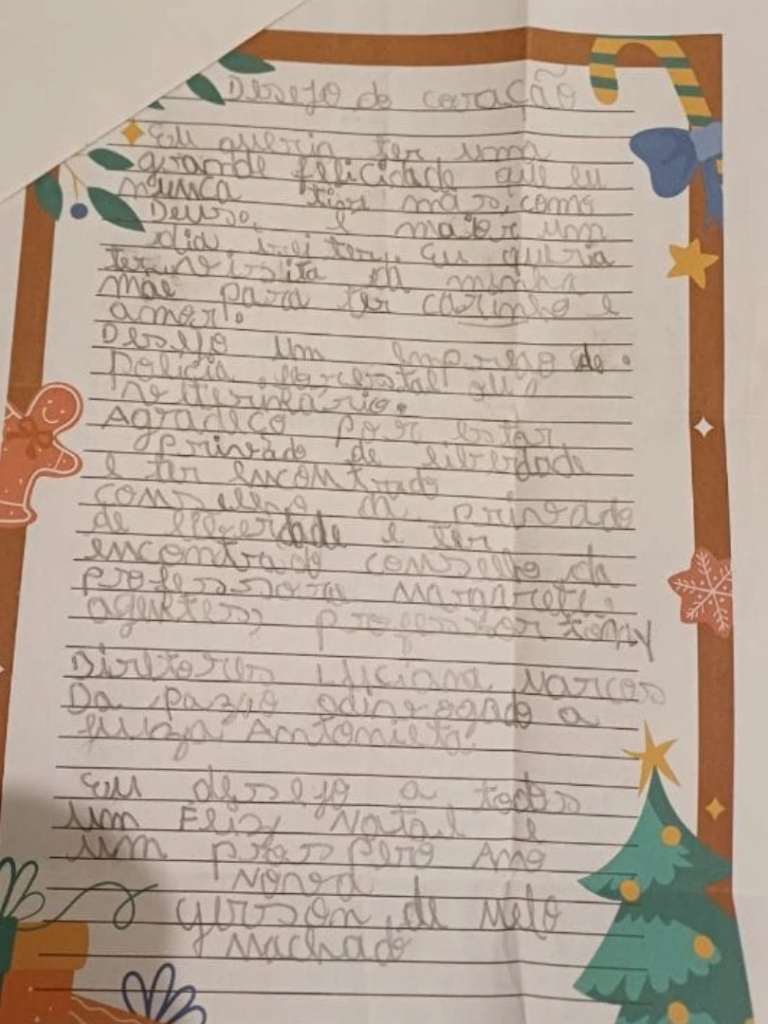 Desejo do coração
Eu queria ter uma
grande felicidade que eu
nunca tive mas, como
Deuso, é maior um
dia irei ter. Eu queria
ter veisita da minha
mãe para ter carinho e
amor!.
Desejo um emprego de.
Policia forestal ou
veiterinário.
Agradeço por estar
privado de liberdade
e ter encontrado
conselho na privado
de liberdade e ter
encontrado conselho da
professora Margarete,
agentes, professor tony
Diretores Luciana Marcos
Da pazão advrogado a
juiza Antonieta.
Eu desejo a todos
um Feliz Natal e
um prospero Ano
Novo
Gerson de Melo
Machado